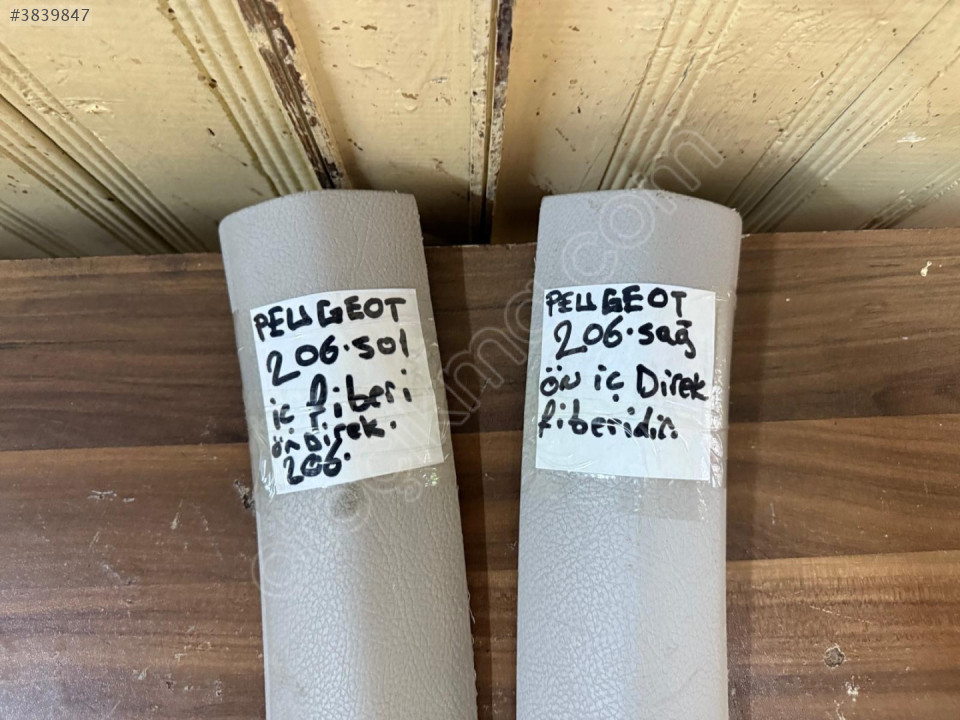 #3839847
PEUGEOT
206.sol
iç fiberi
ön Direk.
206.
PEUGEOT
206.sağ
ön iç Direk
fiberidir.